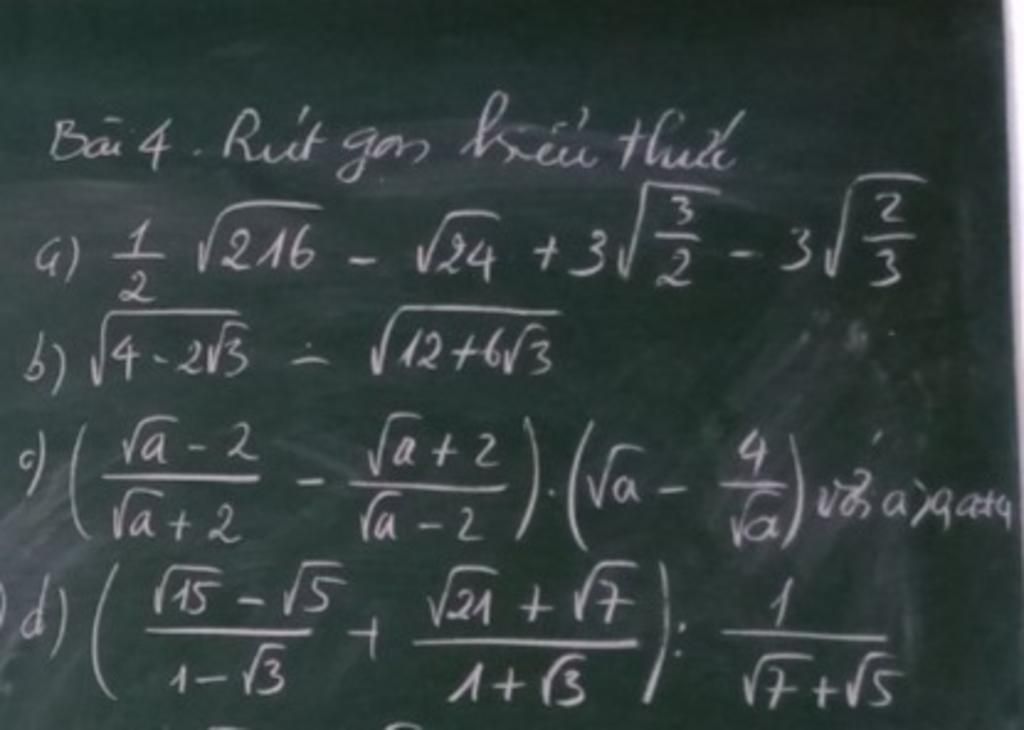 Bài 4. Rút gọn biểu thức
a) 1/2 √216 - √24 + 3√(3/2) - 3√(2/3)
b) √(4 - 2√3) - √(12+6√3)
c) ((√a - 2)/(√a + 2) - (√a + 2)/(√a - 2)) . (√a - 4/√a) với a>0, a≠4
d) ((√15 - √5)/(1 - √3) + (√21 + √7)/(1 + √3)) : 1/(√7 + √5)